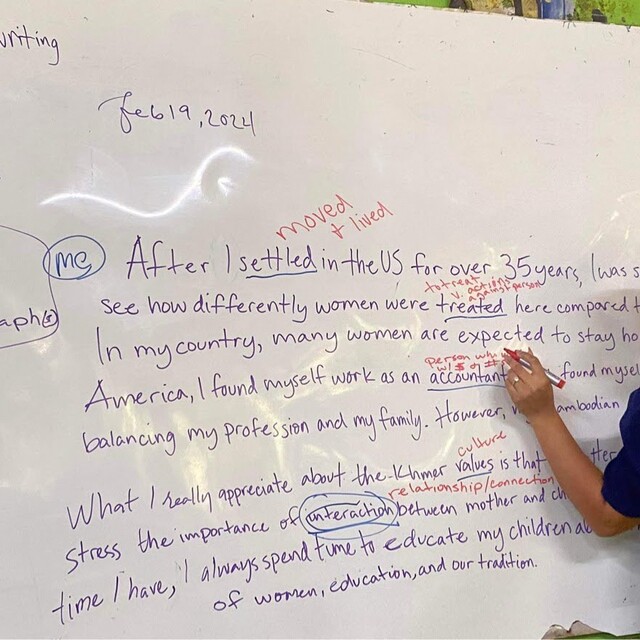 writing
Feb 19, 2024
moved
+ lived
me After I settled in the US for over 35 years, I was
to treat
v. action
against person
see how differently women were treated here compared
aph(s)
In my country, many women are expected to stay
person who
w/ $ or #
America, I found myself work as an accountant found
balancing my profession and my family. However,
culture
What I really appreciate about the Khmer values is that
relationship/connection
stress the importance of interaction between mother and
time I have, I always spend time to educate my children
of women, education, and our tradition.